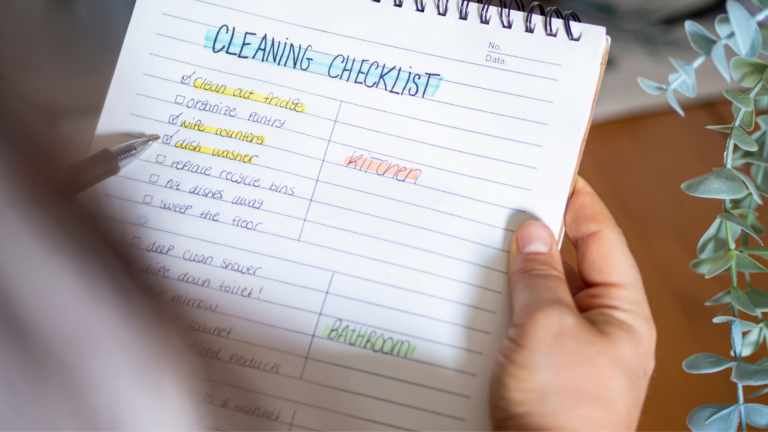 No.
Date.
CLEANING CHECKLIST
clean out fridge
organize pantry
wipe counters
dish washer
replace recycle bins
put dishes away
sweep the floor
KITCHEN
deep clean shower
wipe down toilet!
mirror
cabinet
products
BATHROOM